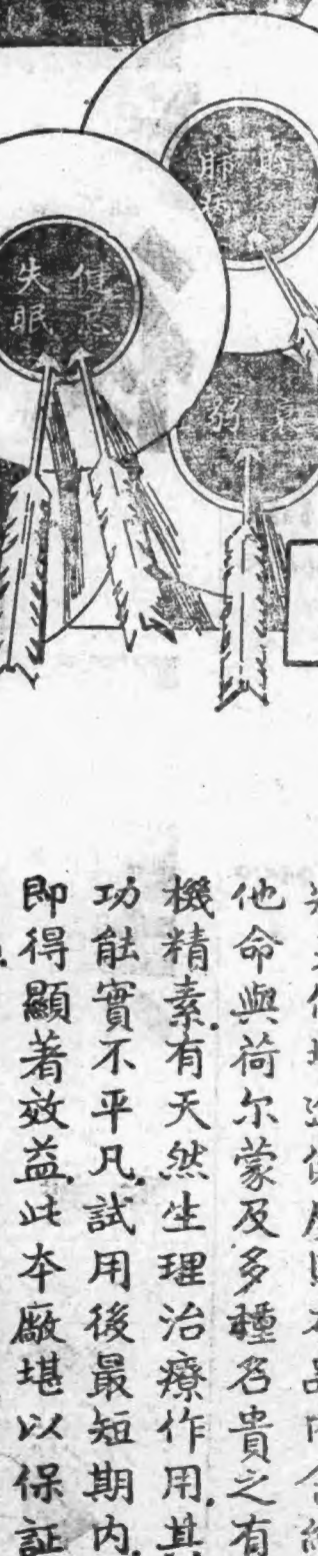 肺病
衰弱
健忘
失眠
他命與荷尔蒙及多種名貴之有
機精素.有天然生理治療作用.其
功能實不平凡.試用後最短期內.
即得顯著效益.此夲廠堪以保証